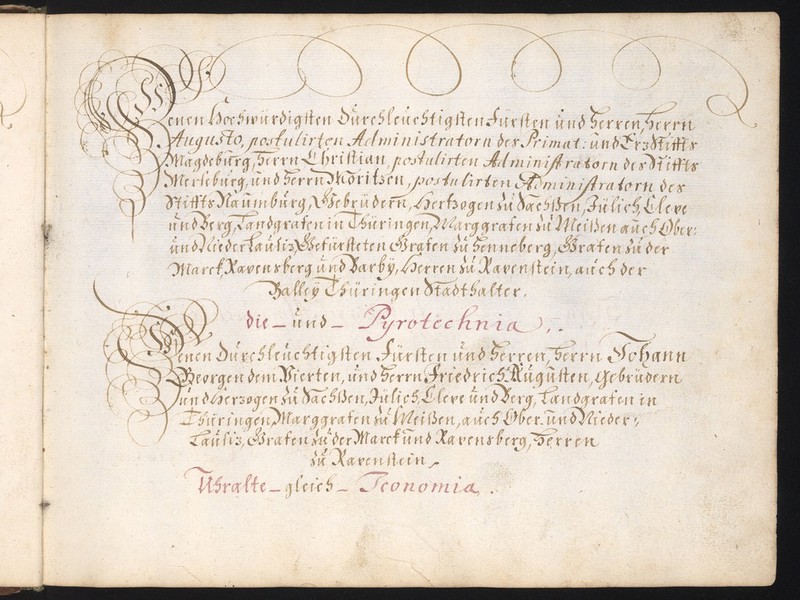 Denen Hochwürdigsten Dürchleüchtigsten Fürsten ünd Herren, Herrn
Augusto, postulirten Administratorn des Primat: ünd ErzStiffts
Magdebürg, Herrn Christian, postulirten Administratorn des Stiffts
Mersebürg, ünd Herrn Moritzen, postulirten Administratorn des
Stiffts Naümbürg, Gebrüdern, Hertzogen zü Sachßen, Jülich, Cleve
ünd Berg, Landgrafen in Thüringen, Marggrafen zü Meißen aüch Ober:
ünd Nieder Laüsiz, Gefürsteten Grafen zü Henneberg, Grafen zü der
Marck, Ravensberg ünd Barbÿ, Herren zü Ravenstein, aüch der
Balleÿ Thüringen Stadthalter.
die _ ünd _ Pyrotechnia.
Denen Dürchleüchtigsten Fürsten ünd Herren, Herrn Johann
Georgen dem Vierten, ünd Herrn Friedrich Aügüsten, Gebrüdern
ünd Herzogen zü Sachßen, Jülich, Cleve ünd Berg, Landgrafen in
Thüringen, Marggrafen zü Meißen, aüch Ober. ünd Nieder-
Laüsiz, Grafen zü der Marck ünd Ravensberg, Herren
zü Ravenstein,
Uhralte _ gleich _ Iconomia.